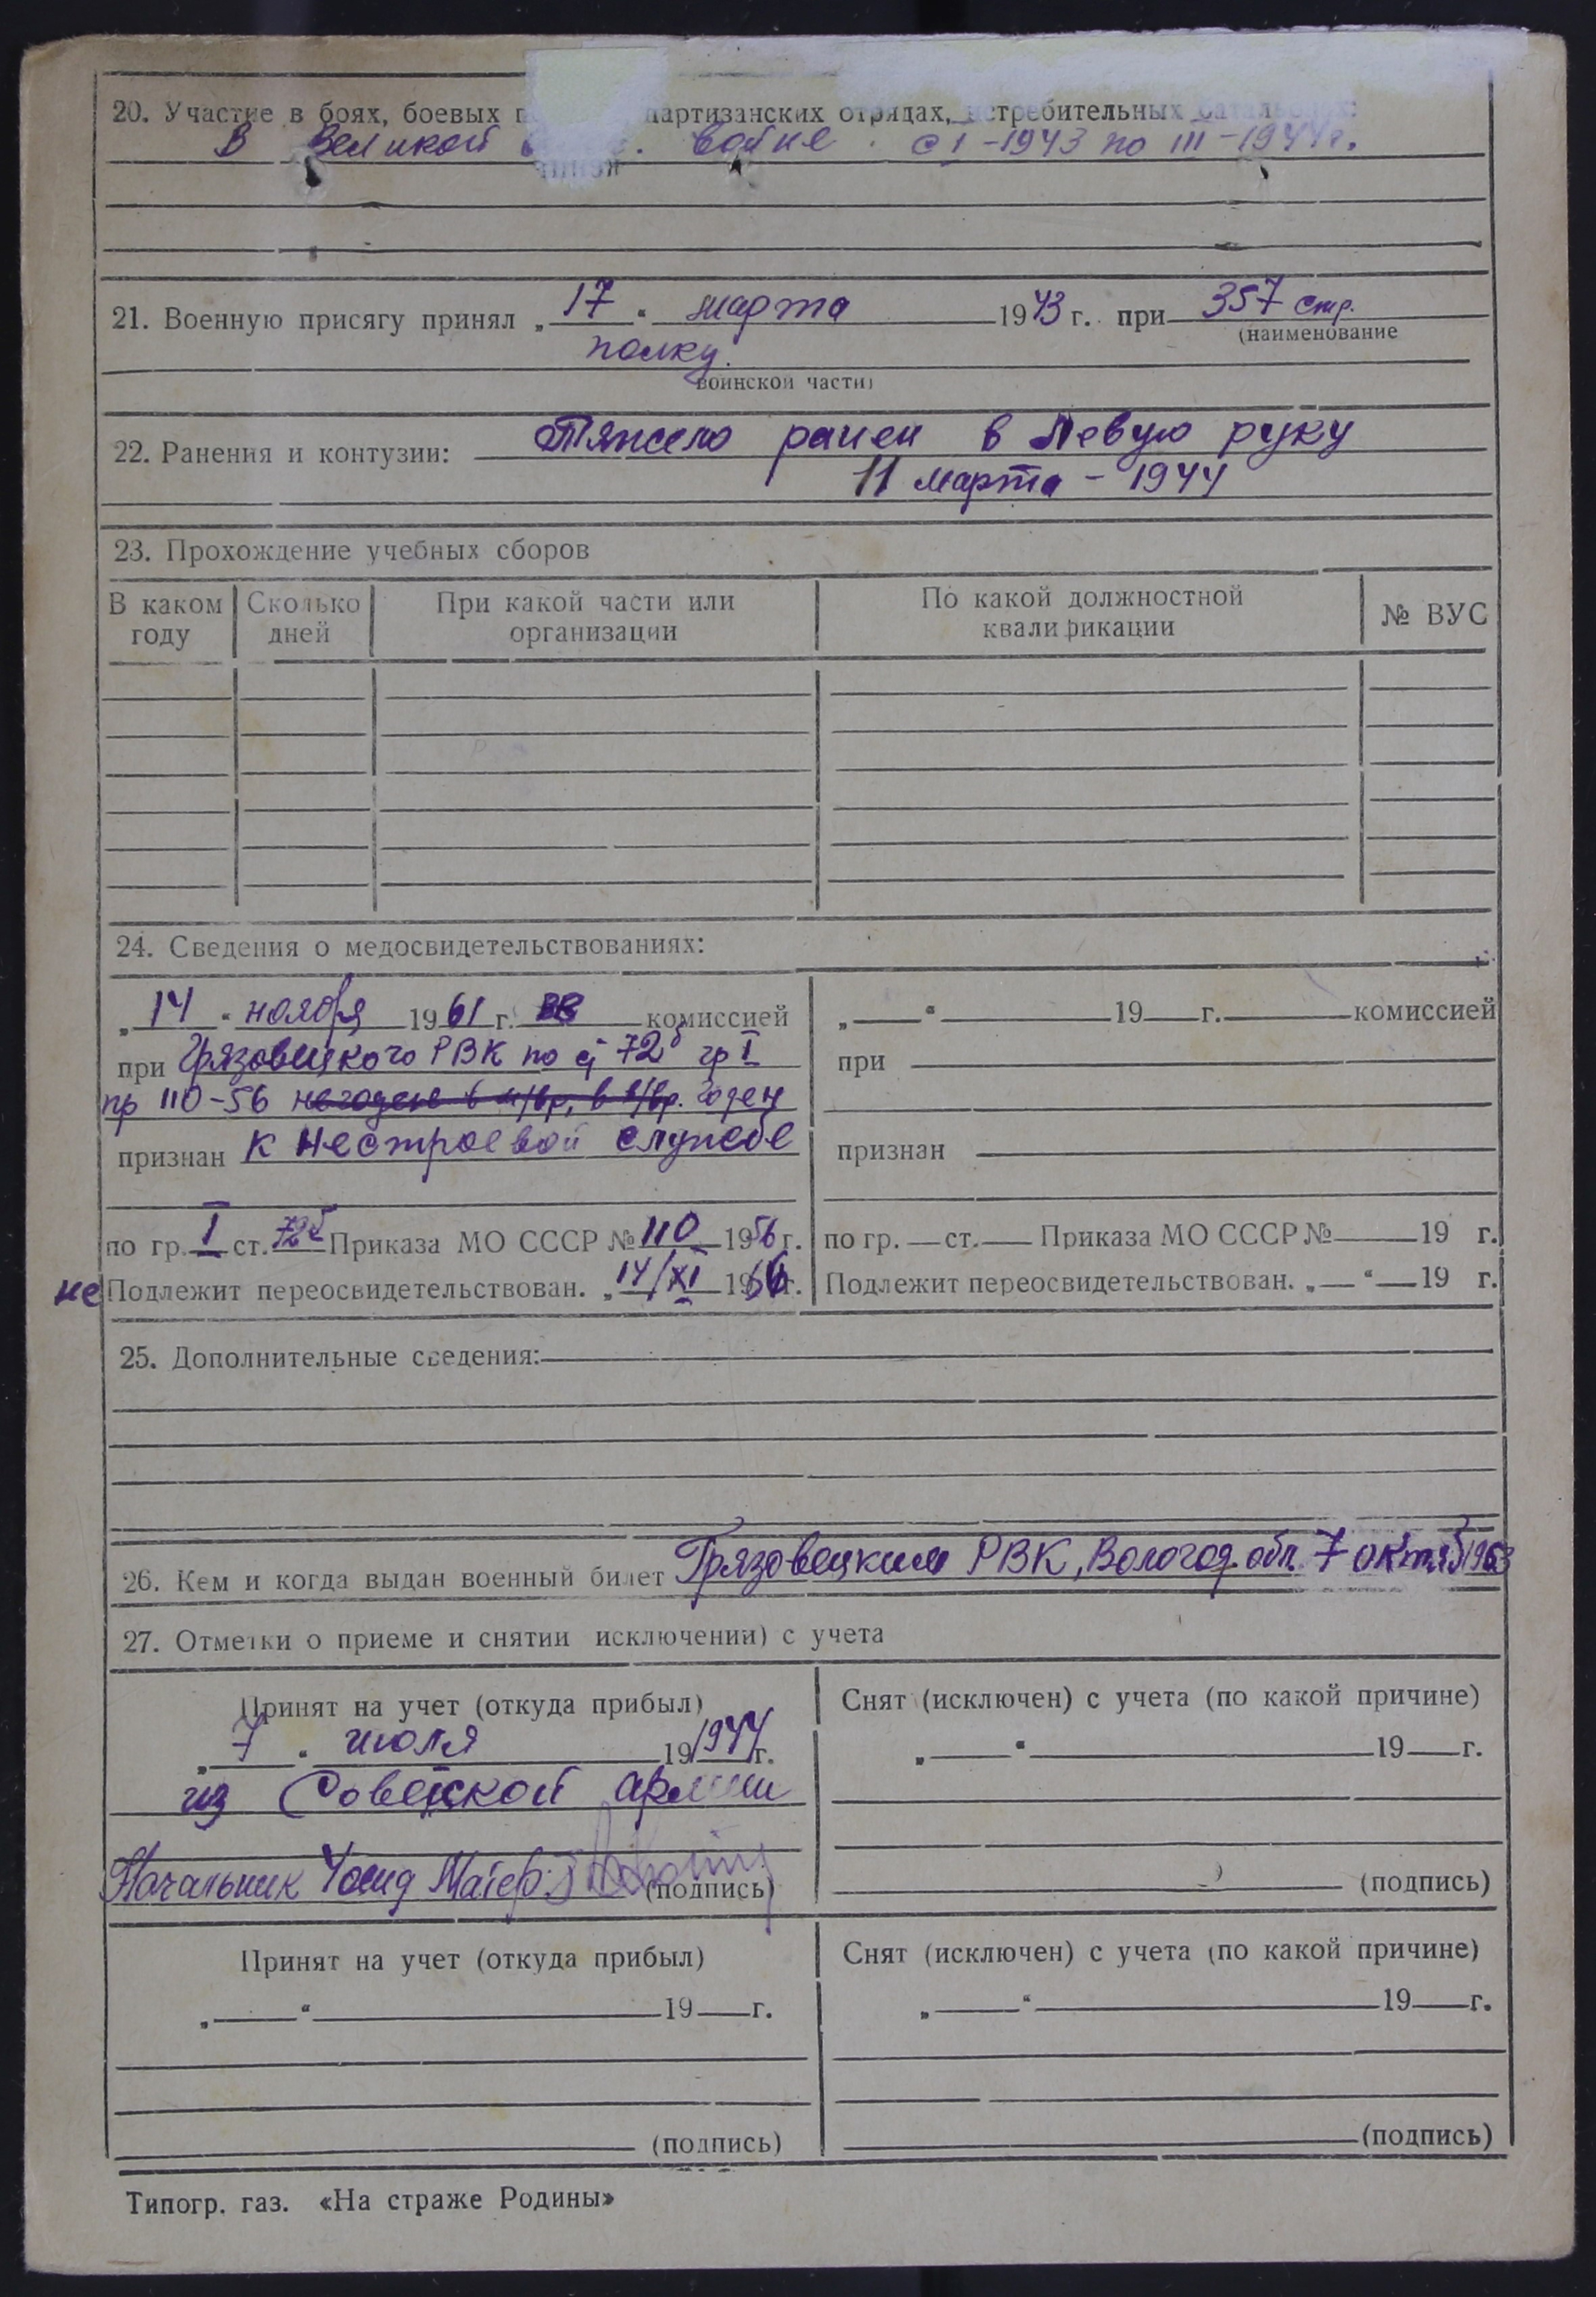 20. Участие в боях, боевых партизанских отрядах, истребительных батальонах:
В Великой войне. с I-1943 по III-1944г.
21. Военную присягу принял „17“ марта 1943 г. при 357 стр.
(наименование
полку.
воинской части)
22. Ранения и контузии: Тяжело ранен в левую руку
11 марта - 1944
23. Прохождение учебных сборов
В каком году | Сколько дней | При какой части или организации | По какой должностной квалификации | № ВУС
24. Сведения о медосвидетельствованиях:
„14“ ноября 1961 г. ВВ комиссией
при Грязовецкого РВК по ст 72б гр I
пр 110-56 негоден в м/вр, в в/вр. годен
признан к нестроевой службе
по гр. I ст. 72б Приказа МО СССР № 110 1956 г.
не Подлежит переосвидетельствован. „14/XI 196 г.
„ “ 19 г. комиссией
при
признан
по гр. ст. Приказа МО СССР № 19 г.
Подлежит переосвидетельствован. „ “ 19 г.
25. Дополнительные сведения:
26. Кем и когда выдан военный билет Грязовецким РВК, Вологод. обл. 7 октяб 1963
27. Отметки о приеме и снятии исключении) с учета
Принят на учет (откуда прибыл)
„7“ июля 19 1944 г.
из Советской армии
Начальник Майор
(подпись)
Снят (исключен) с учета (по какой причине)
„ “ 19 г.
(подпись)
Принят на учет (откуда прибыл)
„ “ 19 г.
(подпись)
Снят (исключен) с учета (по какой причине)
„ “ 19 г.
(подпись)
Типогр. газ. «На страже Родины»